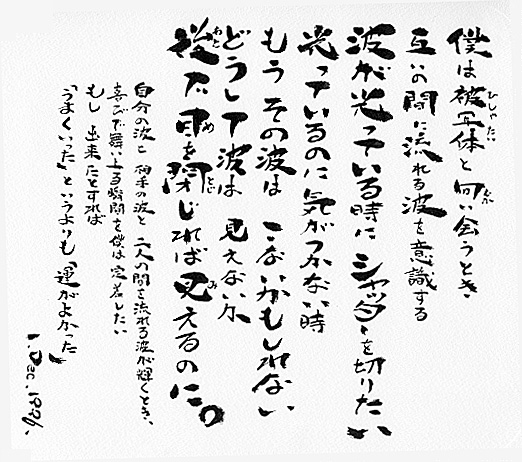 僕は被写体と向い会うとき、
互いの間に流れる波を意識する
波が光っている時に シャッターを切りたい
光っているのに気がつかない時
もう その波は こないかもしれない
どうして波は 見えないか
後で 目を閉じれば 見えるのに。
自分の波と 相手の波と 二人の間を流れる波が輝くとき、
喜びで舞い上る瞬間を僕は定着したい
もし 出来たとすれば
「うまくいった」というよりも「運がよかった」
1. Dec. 1986.